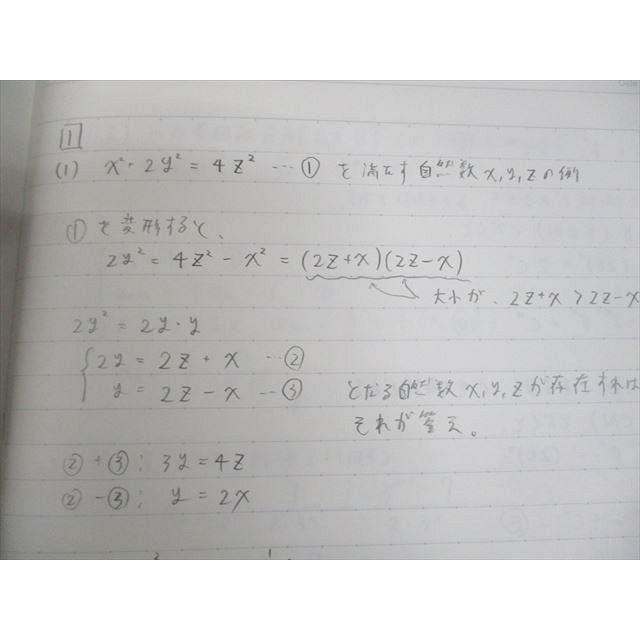 1
(1) x²+2y²=4z² …① を満たす自然数x,y,zの例
①を変形すると、
2y²=4z²-x²=(2z+x)(2z-x)
大小が、2z+x>2z-x
2y²=2y・y
2y=2z+x …②
y=2z-x …③ となる自然数x,y,zが存在すれば
それが答え。
②+③: 3y=4z
②-③: y=2x